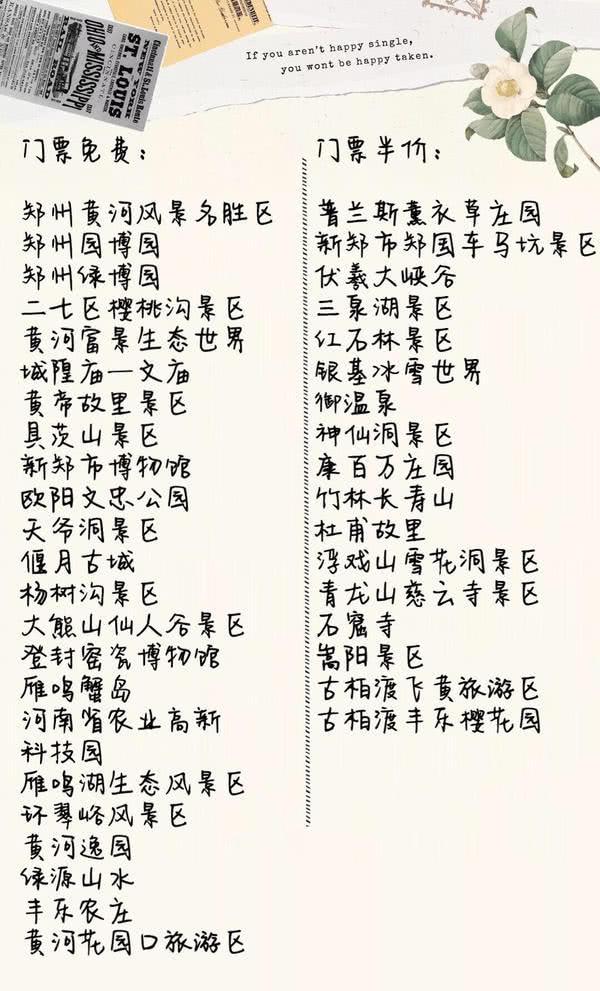 NEW YORK
ST. LOUIS
OHIO & MISSISSIPPI
RAIL ROAD
If you aren't happy single,
you wont be happy taken.
门票免费:
郑州黄河风景名胜区
郑州园博园
郑州绿博园
二七区樱桃沟景区
黄河富景生态世界
城隍庙—文庙
黄帝故里景区
具茨山景区
新郑市博物馆
欧阳文忠公园
天爷洞景区
偃月古城
杨树沟景区
大熊山仙人谷景区
登封窑瓷博物馆
雁鸣蟹岛
河南省农业高新
科技园
雁鸣湖生态风景区
环翠峪风景区
黄河逸园
绿源山水
丰乐农庄
黄河花园口旅游区
门票半价:
普兰斯薰衣草庄园
新郑市郑国车马坑景区
伏羲大峡谷
三泉湖景区
红石林景区
银基冰雪世界
御温泉
神仙洞景区
康百万庄园
竹林长寿山
杜甫故里
浮戏山雪花洞景区
青龙山慈云寺景区
石窟寺
嵩阳景区
古柏渡飞黄旅游区
古柏渡丰乐樱花园